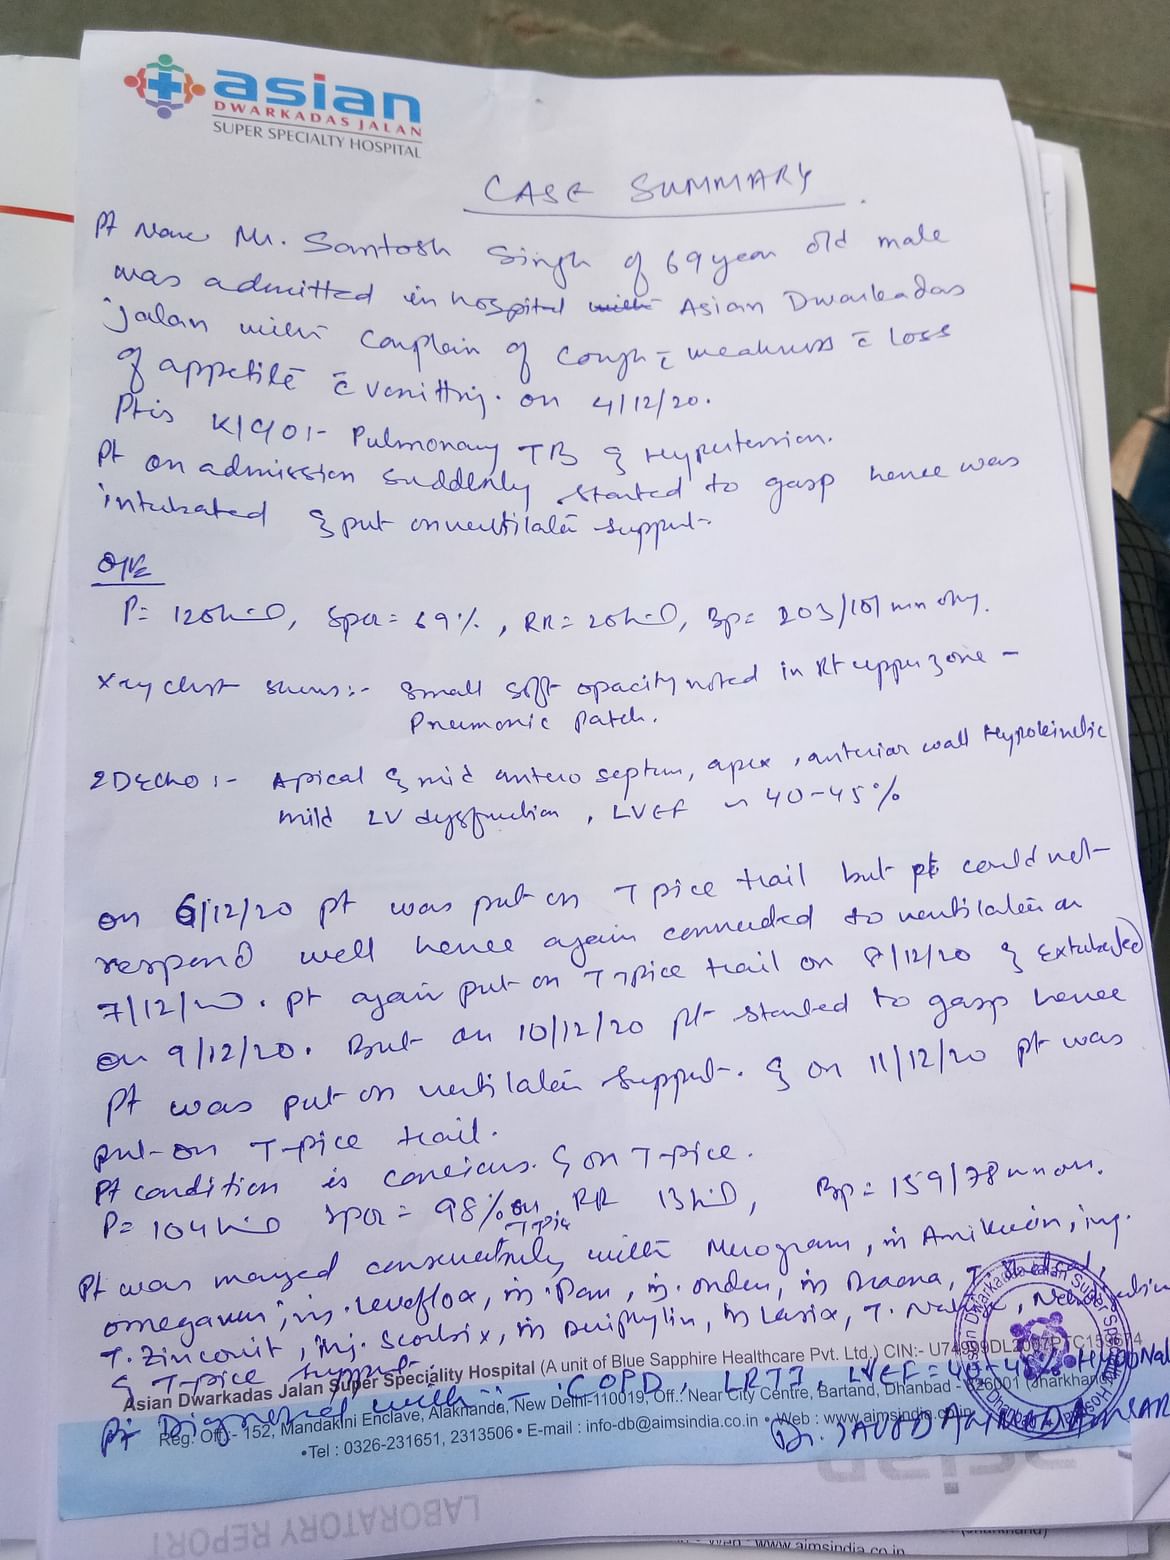 asian
DWARKADAS JALAN
SUPER SPECIALTY HOSPITAL
CASE SUMMARY
Pt Name Mr. Santosh Singh of 69 year old male
was admitted in hospital with Asian Dwarkadas
Jalan with complain of cough c̄ weakness c̄ loss
of appetite c̄ vomitting. on 4/12/20.
Pt is K/C/O:- Pulmonary TB & Hypertension.
Pt on admission suddenly started to gasp hence was
intubated & put on ventilator support.
O/E
P= 120 , SpO2= 69%, RR= 20 , BP= 203/101 mmHg.
Xray chest shows:- Small soft opacity noted in Rt upper zone -
Pneumonic Patch.
2D Echo:- Apical & mid antero septum, apex, anterior wall Hypokinetic
mild LV dysfunction, LVEF ~ 40-45%
on 6/12/20 pt was put on T pice trail but pt could not
respond well hence again connected to ventilator on
7/12/20. Pt again put on T pice trail on 8/12/20 & Extubated
on 9/12/20. But on 10/12/20 pt started to gasp hence
Pt was put on ventilator support. & on 11/12/20 pt was
put on T-pice trail.
Pt condition is concious. & on T-pice.
P= 104 SpO2 = 98% on T-pic RR 13 , BP = 159/78 mm
Pt was manged conservatively with Merogram, in Amikacin, inj.
omegaven, inj. Levoflox, inj. Pan, inj. onden, in T.
T. Zinconit, Inj. in Deriphylin, in Lasix, T.
& T-pice support.
Pt Diagnosed with :- COPD, LRTI, LVEF = 40-45%
Dr.
Asian Dwarkadas Jalan Super Speciality Hospital (A unit of Blue Sapphire Healthcare Pvt. Ltd.) CIN:- U74999DL2007PTC159674
Reg. Off.:- 152, Mandakini Enclave, Alaknanda, New Delhi-110019, Off.: Near City Centre, Bartand, Dhanbad - 826001 (Jharkhand)
•Tel : 0326-231651, 2313506 • E-mail : info-db@aimsindia.co.in • Web : www.aimsindia.co.in
LABORATORY REPORT
www.aimsindia.co.in